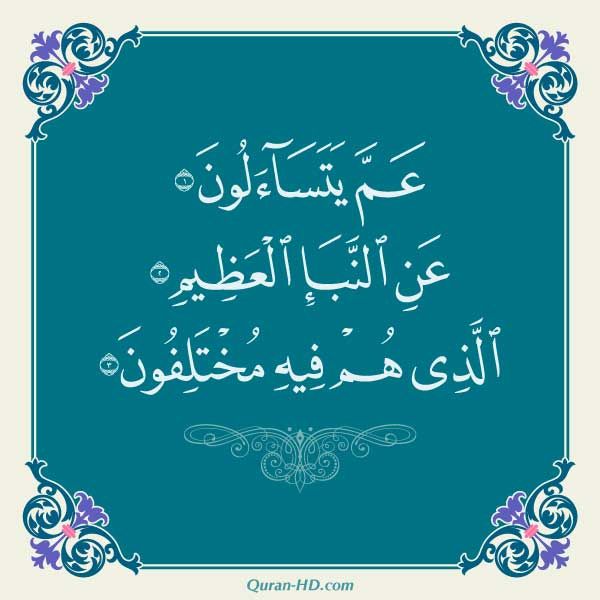 عَمَّ يَتَسَآءَلُونَ ١
عَنِ ٱلنَّبَإِ ٱلْعَظِيمِ ٢
ٱلَّذِى هُمْ فِيهِ مُخْتَلِفُونَ ٣
Quran-HD.com